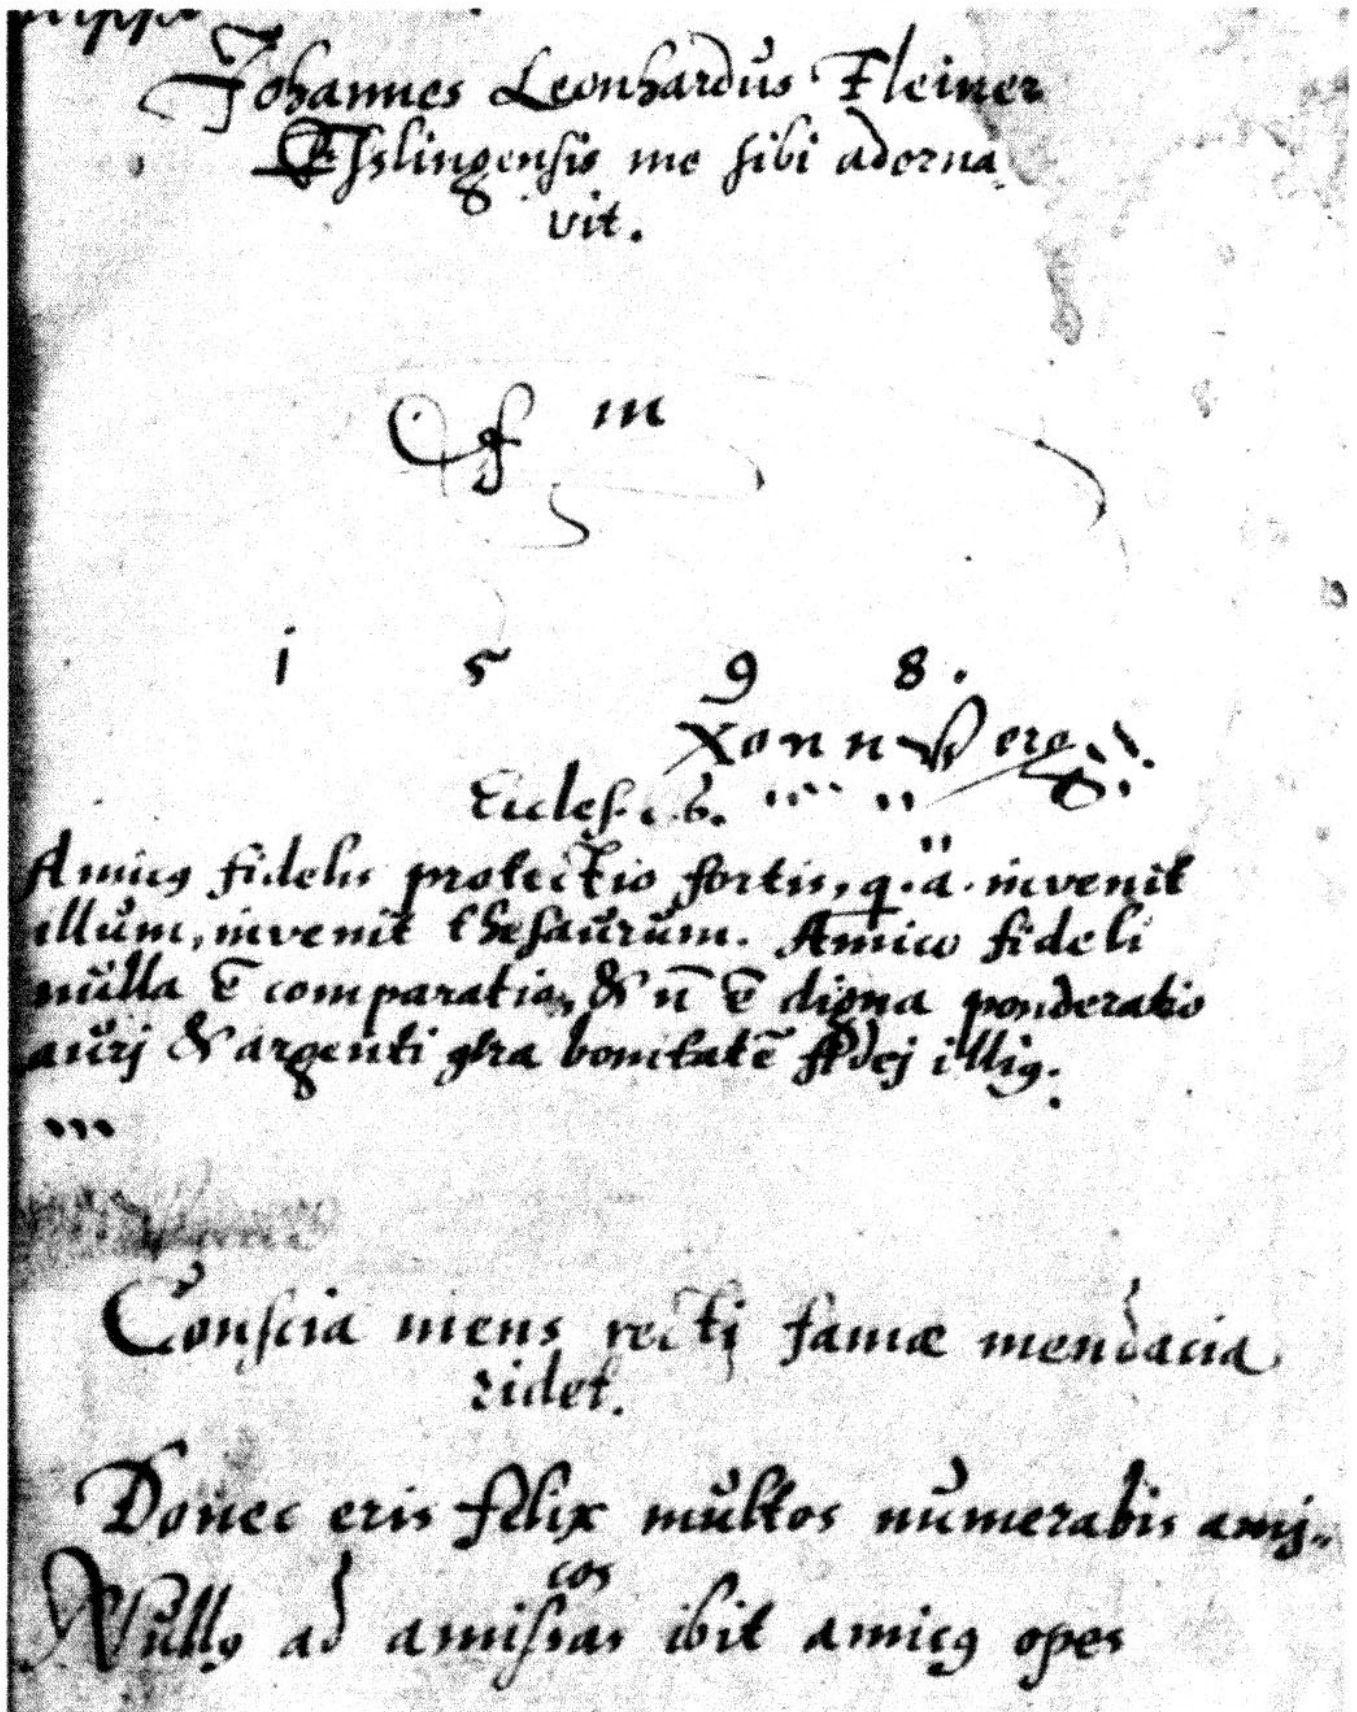 Johannes Leonhardus Fleiner
Esslingensis me sibi adorna
vit.
m
1 5 9 8.
Eccles. 6.
Amicq fidelis protectio fortis, q. a. invenit
illum, invenit thesaurum. Amico fideli
nulla ē comparatio, & n̄ ē digna ponderatio
aurj & argenti gtra bonitatē fidej illiq.
Conscia mens rectj famæ mendacia
ridet.
Donec eris felix multos numerabis amj„
cos
Nullq ad amissas ibit amicq opes